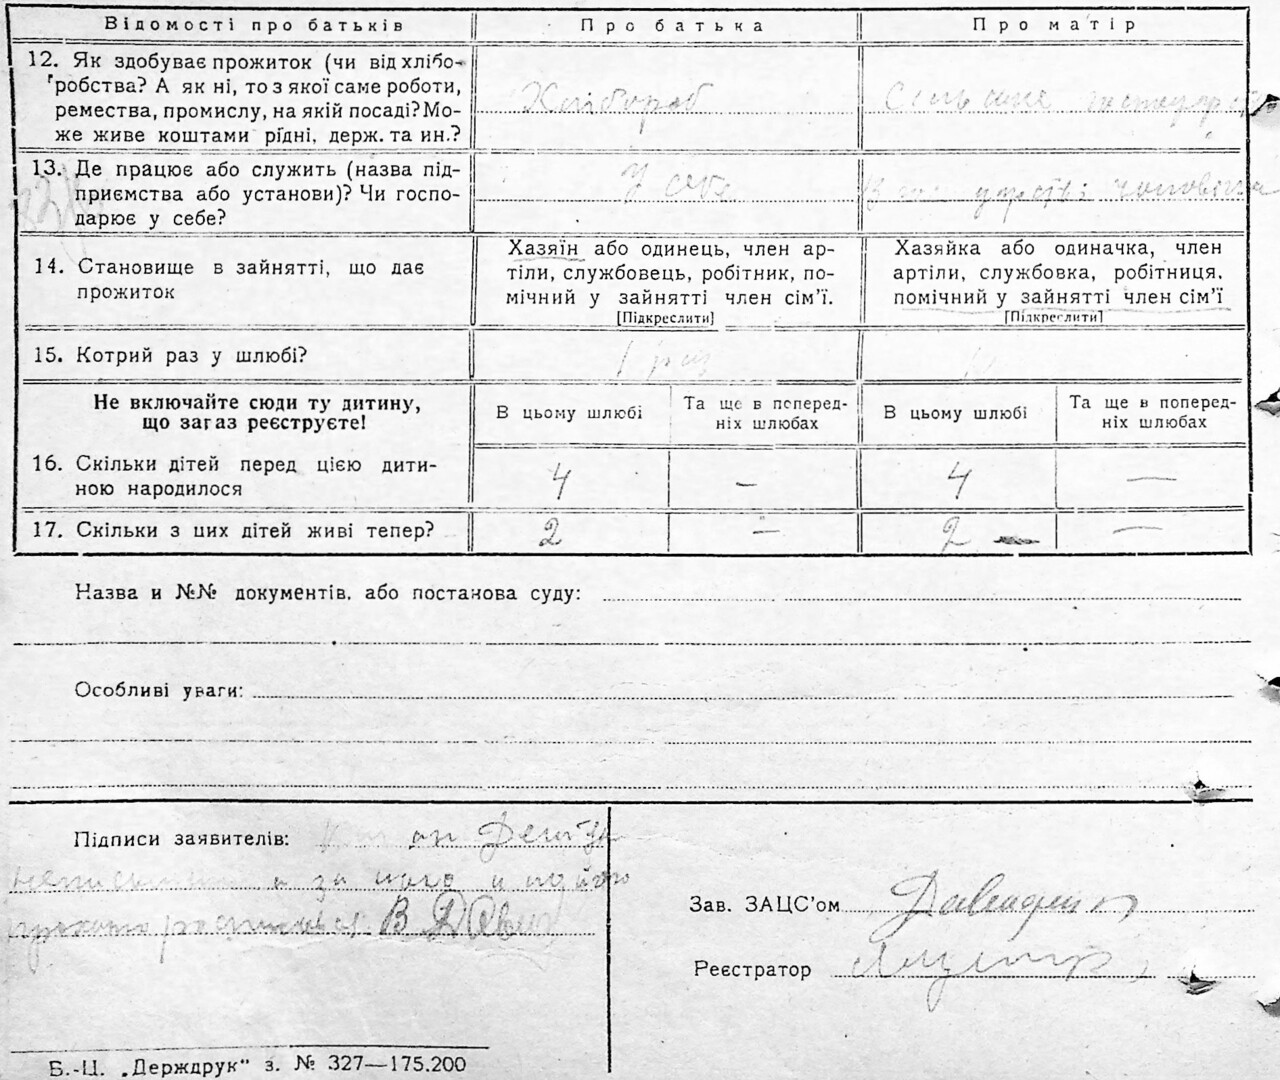 Відомості про батьків Про батька Про матір
12. Як здобуває прожиток (чи від хлібо-
робства? А як ні, то з якої саме роботи,
ремества, промислу, на якій посаді? Мо-
же живе коштами рідні, держ. та ин.?
Хлібороб
13. Де працює або служить (назва під-
приємства або установи)? Чи госпо-
дарює у себе?
У себе
14. Становище в зайнятті, що дає
прожиток
Хазяїн або одинець, член ар-
тіли, службовець, робітник, по-
мічний у зайнятті член сім’ї.
[Підкреслити]
Хазяйка або одиначка, член
артіли, службовка, робітниця,
помічний у зайнятті член сім’ї
[Підкреслити]
15. Котрий раз у шлюбі?
1 раз
Не включайте сюди ту дитину,
що зараз реєструєте!
В цьому шлюбі
Та ще в поперед-
ніх шлюбах
В цьому шлюбі
Та ще в поперед-
ніх шлюбах
16. Скільки дітей перед цією дити-
ною народилося
4 — 4 —
17. Скільки з цих дітей живі тепер?
2 — 2 —
Назва и №№ документів, або постанова суду:
Особливі уваги:
Підписи заявителів:
а за його
В
Зав. ЗАЦС’ом
Реєстратор
Б.-Ц. „Держдрук“ з. № 327—175.200